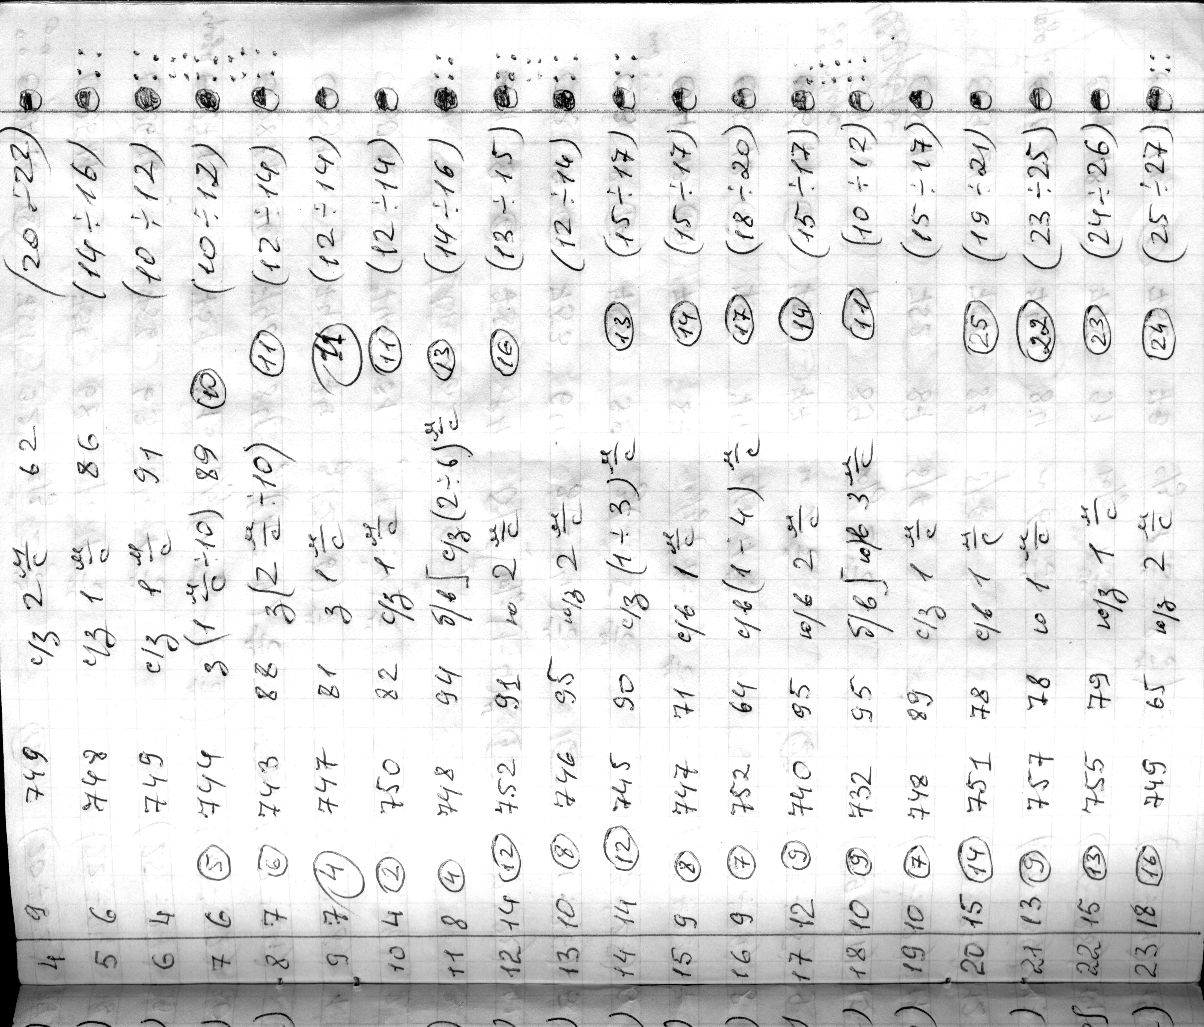 4 9 749 с/з 2 м/с 62 (20÷22)
5 6 748 с/з 1 м/с 86 (14÷16)
6 4 749 с/з 1 м/с 91 (10÷12)
7 6 5 744 з (1 м/с ÷10) 89 10 (10÷12)
8 7 6 743 88 з (2 м/с ÷10) 11 (12÷14)
9 7 4 747 81 з 1 м/с 11 (12÷14)
10 4 2 750 82 с/з 1 м/с 11 (12÷14)
11 8 4 748 94 б/в] с/з (2÷6) м/с 13 (14÷16)
12 14 12 752 91 ю 2 м/с 16 (13÷15)
13 10 8 746 95 ю/з 2 м/с (12÷14)
14 14 12 745 90 с/з (1÷3) м/с 13 (15÷17)
15 9 8 747 71 с/в 1 м/с 14 (15÷17)
16 9 7 752 64 с/в (1÷4) м/с 17 (18÷20)
17 12 9 740 95 ю/в 2 м/с 14 (15÷17)
18 10 9 732 95 б/в] ю/в 3 м/с 11 (10÷12)
19 10 7 748 89 с/з 1 м/с (15÷17)
20 15 14 751 78 с/в 1 м/с 25 (19÷21)
21 13 9 757 78 ю 1 м/с 22 (23÷25)
22 15 13 755 79 ю/з 1 м/с 23 (24÷26)
23 18 16 749 65 ю/з 2 м/с 24 (25÷27)